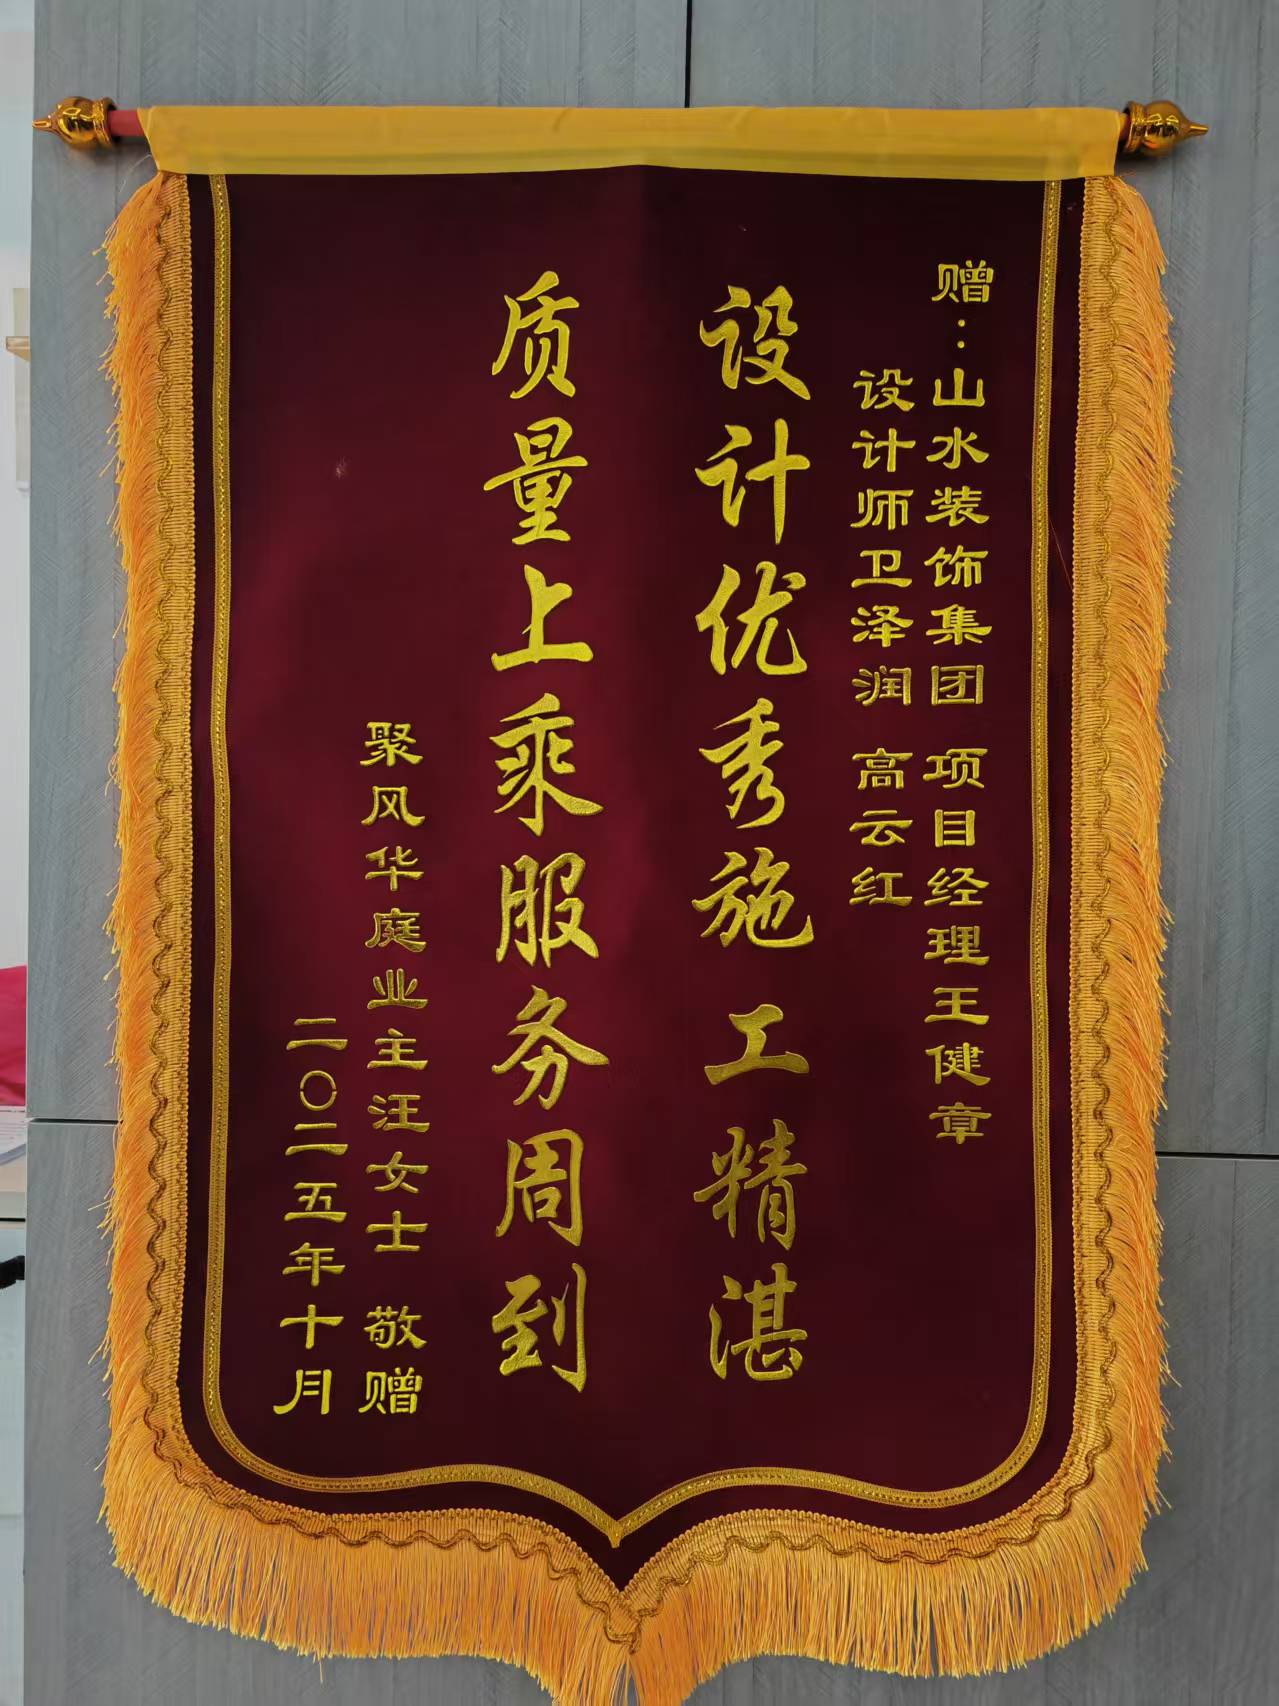 赠：山水装饰集团 项目经理王健章
设计师卫泽润 高云红
设计优秀施工精湛
质量上乘服务周到
聚风华庭业主汪女士 敬赠
二〇二五年十月